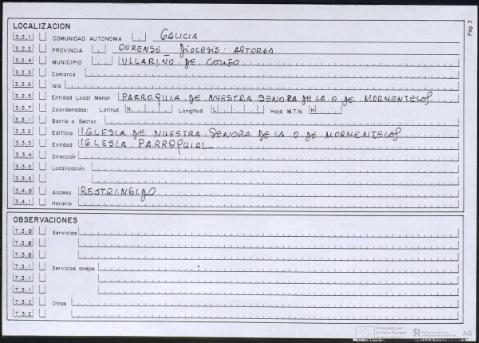 Pág. 2
LOCALIZACION
3.2.1 COMUNIDAD AUTONOMA GALICIA
3.2.2 PROVINCIA OURENSE _ DIOCESIS: ASTORGA
3.2.4 MUNICIPIO VILLARINO DE CONSO
3.2.3 Comarca
3.2.6 Isla
3.2.5 Entidad Local Menor PARROQUIA DE NUESTRA SENORA DE LA O DE MORMENTELOS
3.2.7 Coordenadas: Latitud N Longitud L Hoja M.T.N. H
3.3.1 Barrio o Sector
3.3.2 Edificio IGLESIA DE NUESTRA SENORA DE LA O DE MORMENTELOS
3.3.3 Entidad IGLESIA PARROQUIAL
3.3.4 Dirección
3.3.5 Localización
3.3.5
3.4.0 Acceso RESTRINGIDO
3.4.1 Horario
OBSERVACIONES
7.3.0 Servicios
7.3.0
7.3.0
7.3.1 Servicios anejos
7.3.1
7.3.1
7.3.2 Otros
7.3.2
AG